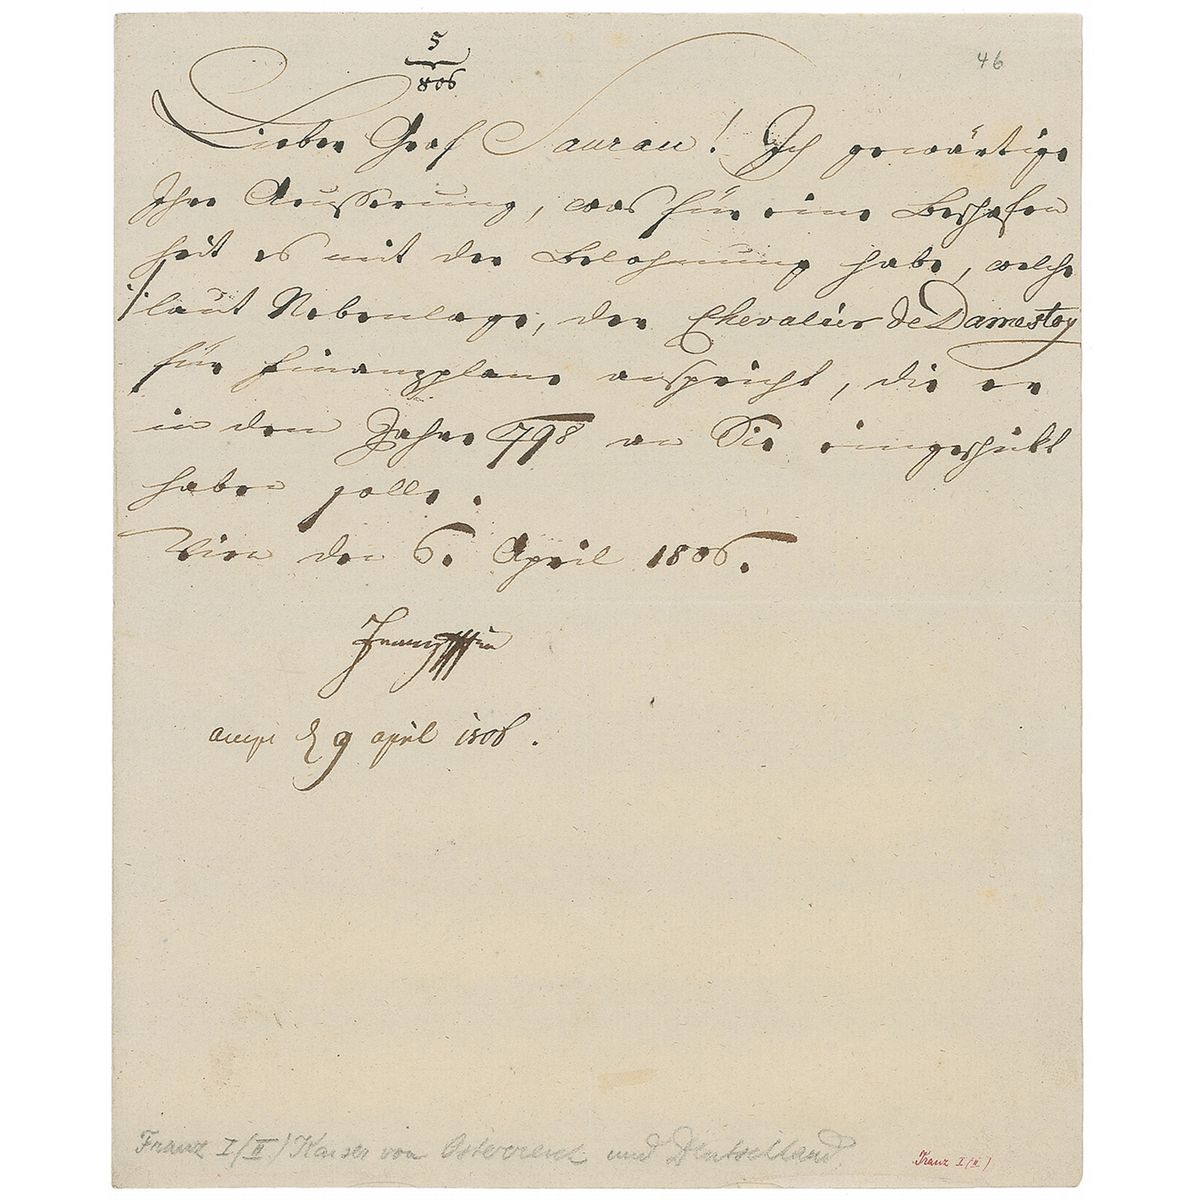 5
806
46
Lieber Graf Saurau! Ich gewärtige
Ihre Äusserung, was für eine Beschafen
heit es mit der Belohnung habe, welche
laut Nebenlage, der Chevalier de Damestoy
für Finanzplane anspricht, die er
in dem Jahre 798 an Sie eingeschikt
haben solle.
Wien den 6. April 1806.
Franz
accepi d 9 april 1806.
Franz I (II) Kaiser von Österreich und Deutschland
Franz I (II)